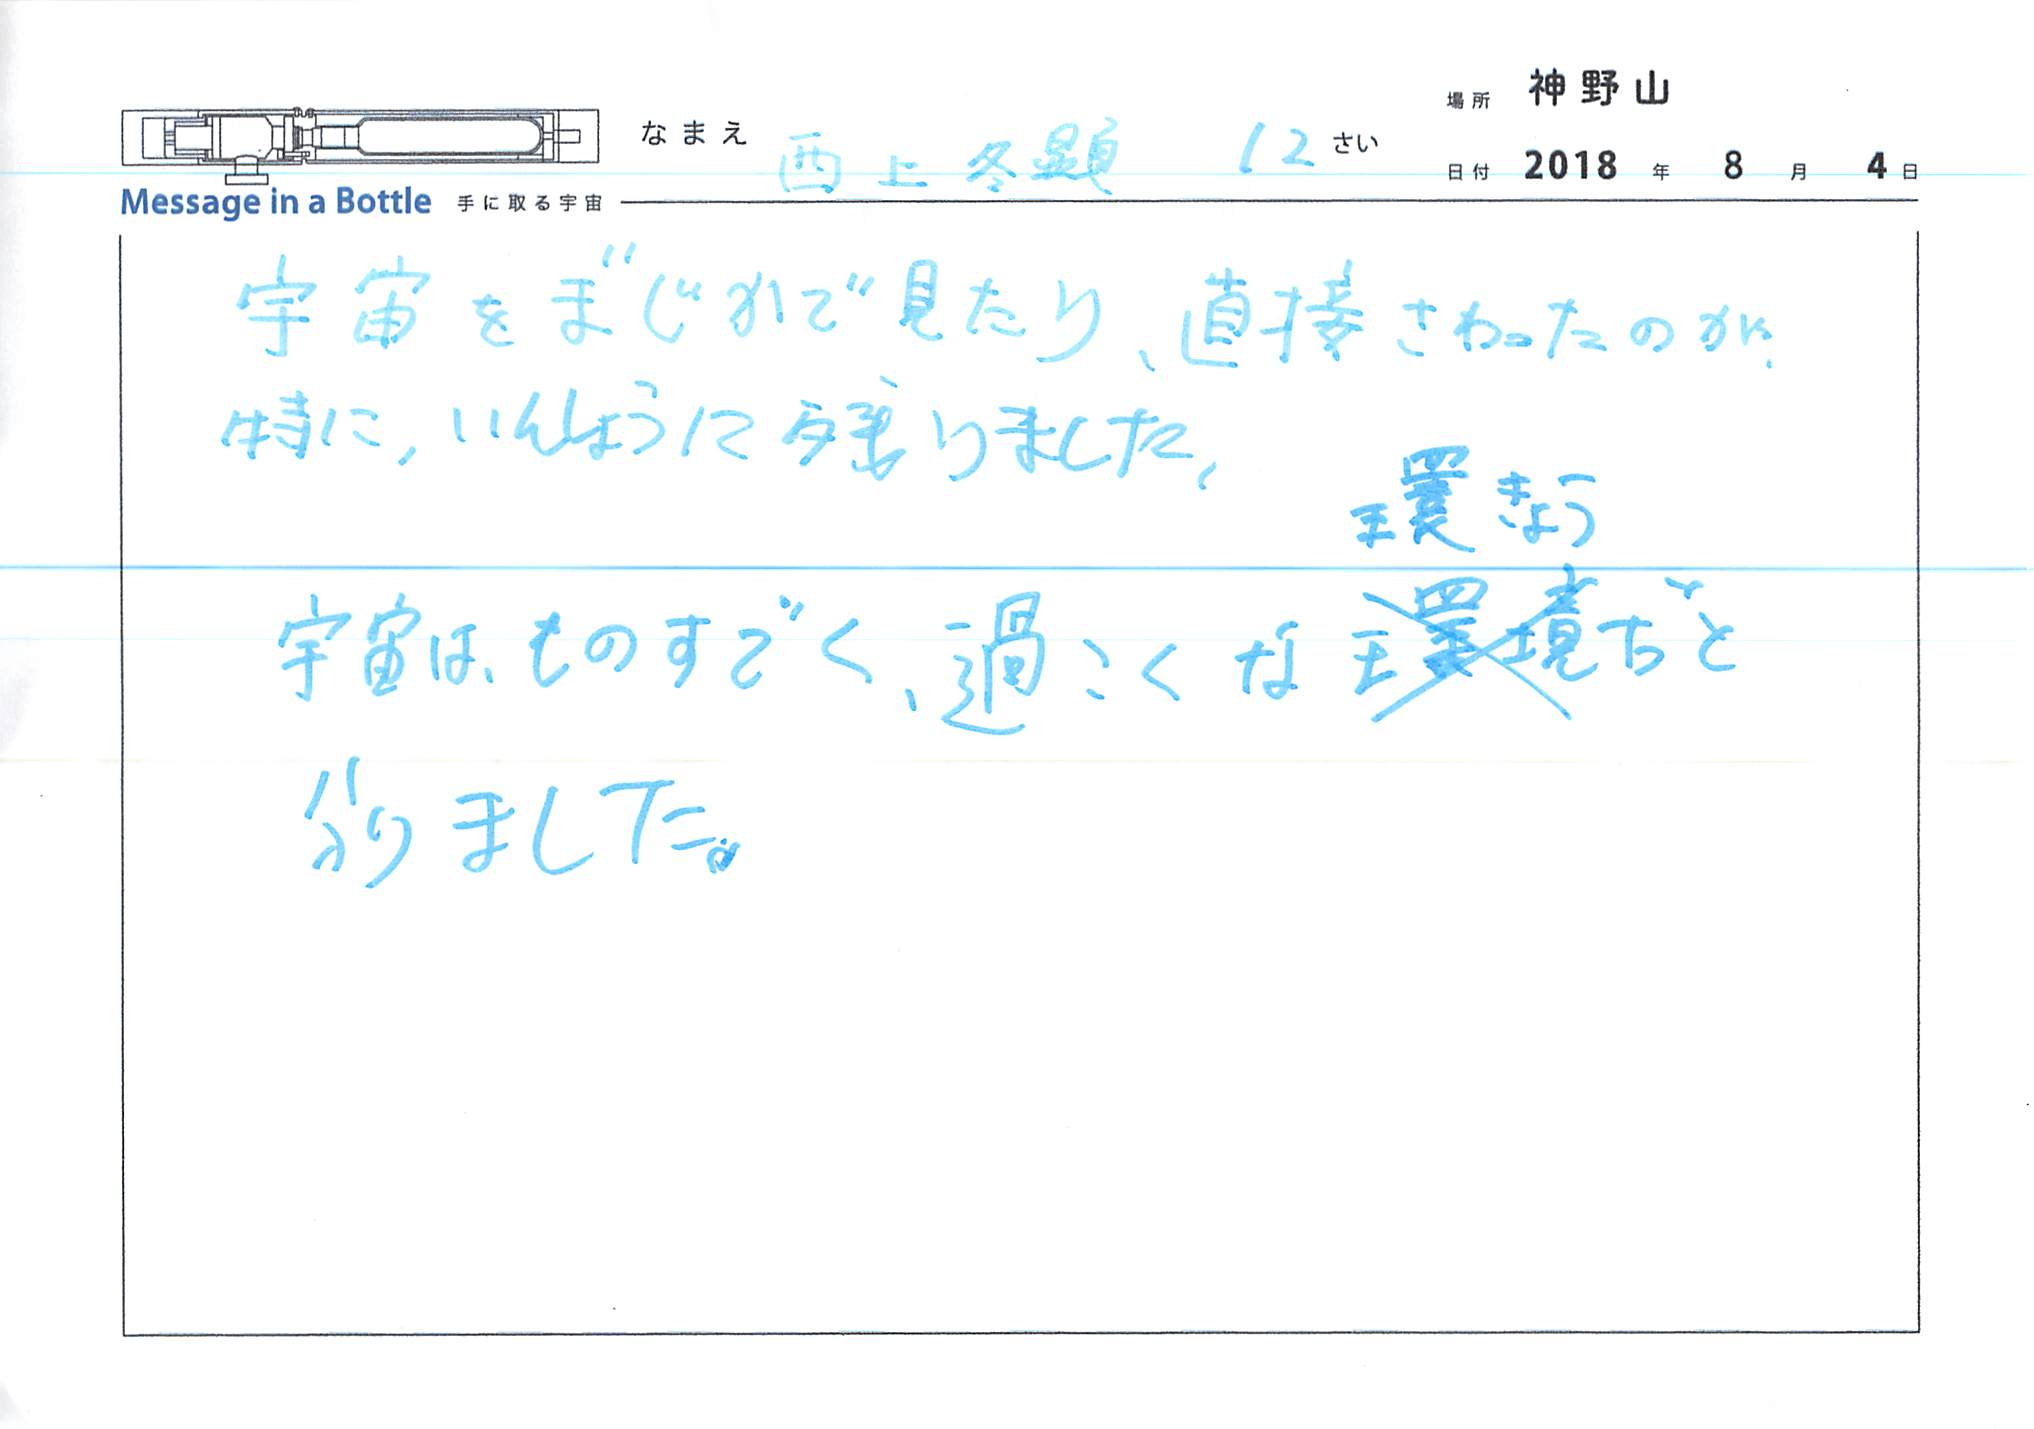 場所 神野山
なまえ 西上冬顕 12 さい
日付 2018 年 8 月 4 日
Message in a Bottle 手に取る宇宙
宇宙をま゛じかで見たり、直接さわったのが、
特に、いんしょうに残りました、
環きょう
宇宙は、ものすごく、過こくな環境だと
分りました。